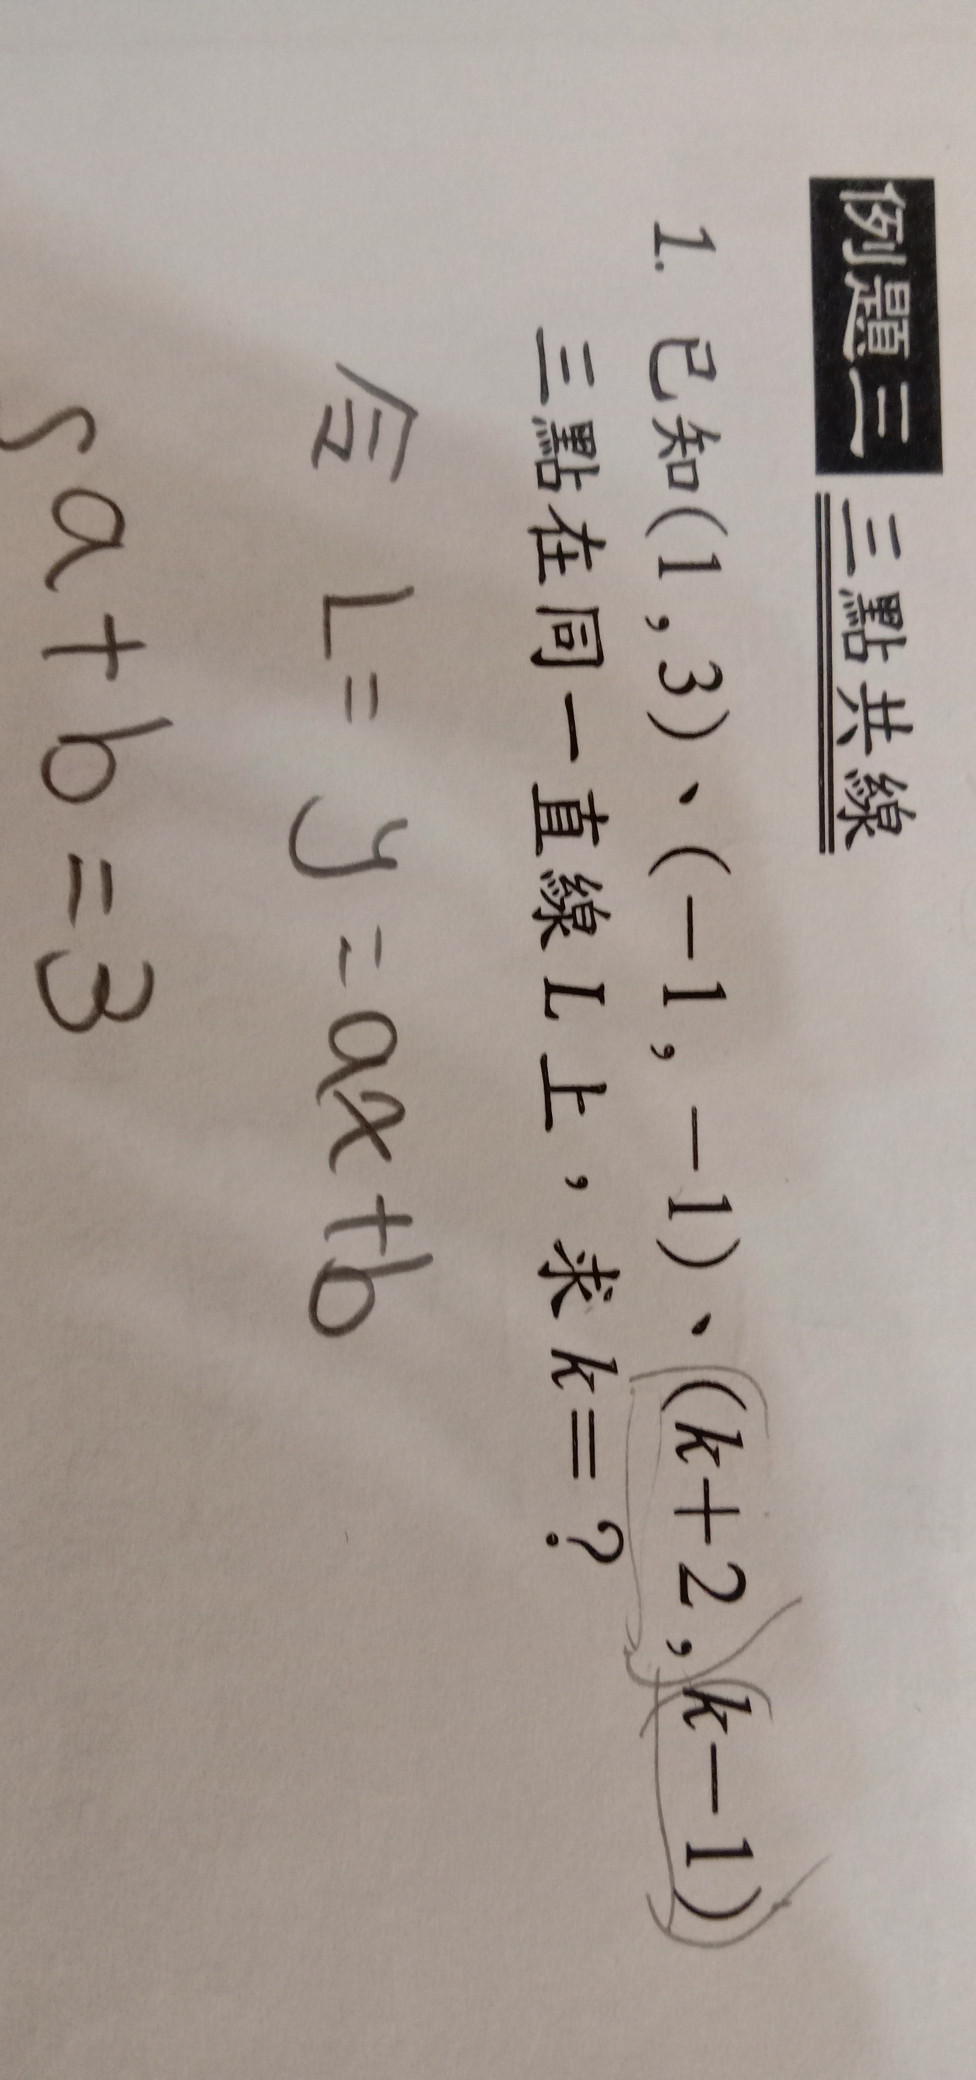 例題三 三點共線
1. 已知(1,3)、(-1,-1)、(k+2,k-1)
三點在同一直線L上,求k=?
令 L= y=ax+b
{a+b=3